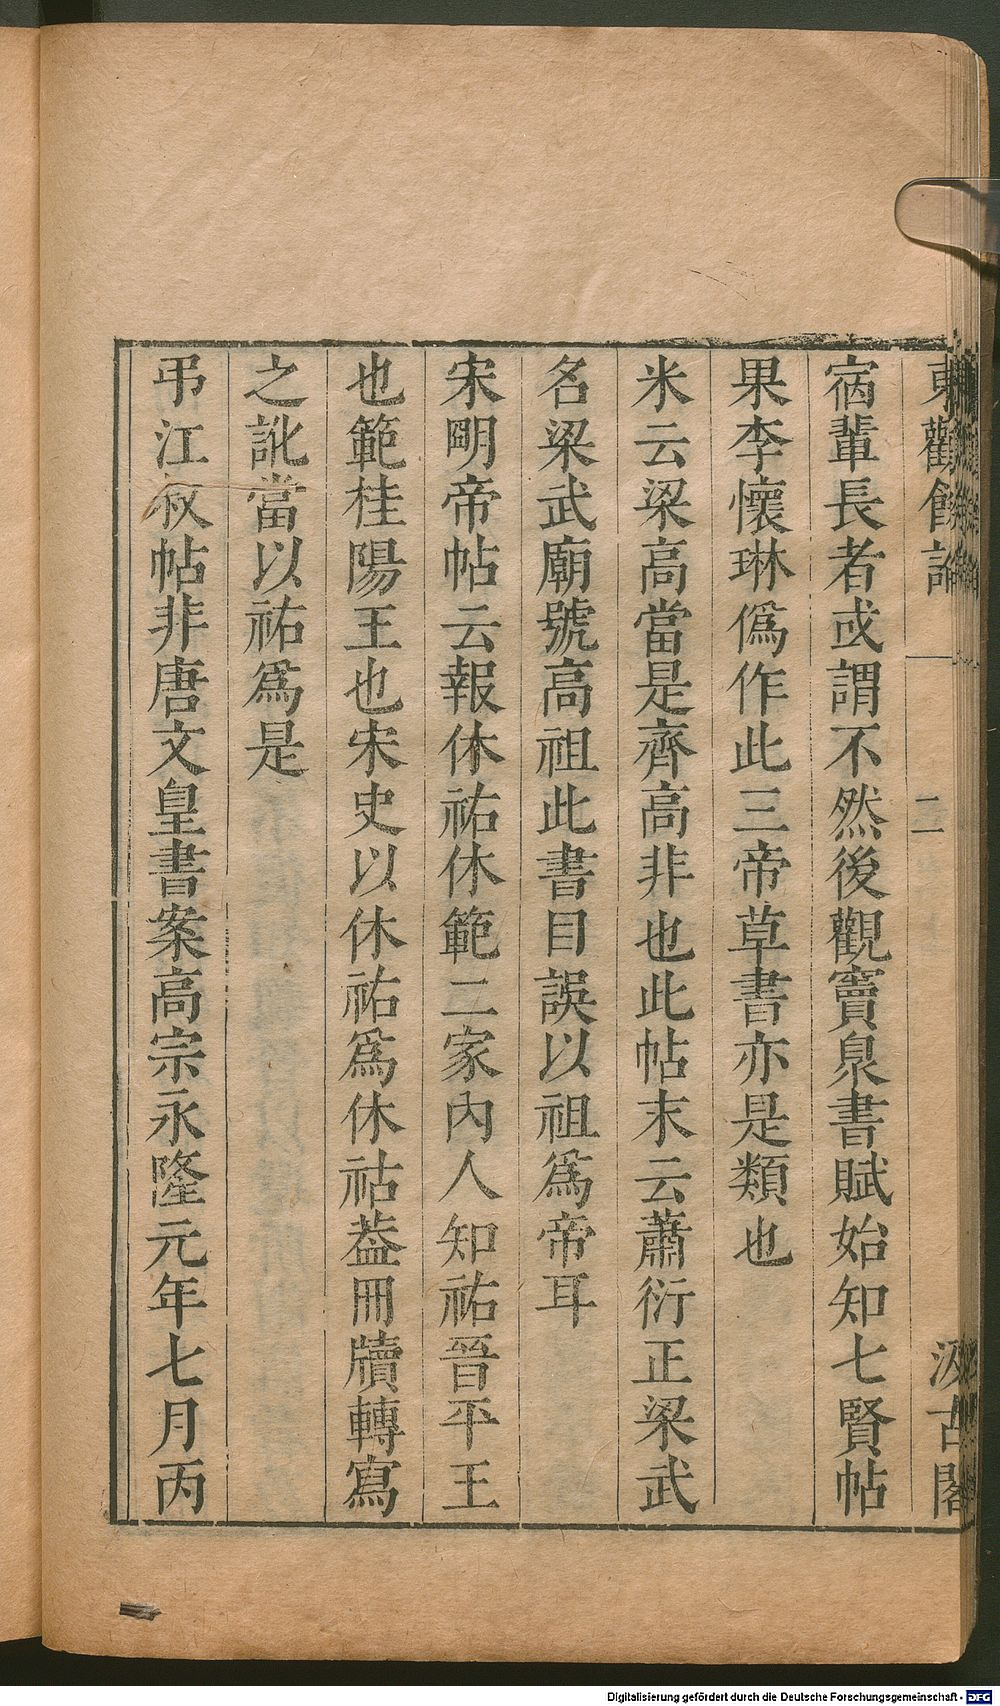 東觀餘論 二 汲古閣
宿輩長者或謂不然後觀竇臮書賦始知七賢帖
果李懷琳僞作此三帝草書亦是類也
米云梁高當是齊高非也此帖末云蕭衍正梁武
名梁武廟號高祖此書目誤以祖爲帝耳
宋明帝帖云報休祐休範二家內人知祐晉平王
也範桂陽王也宋史以休祐爲休祜葢冊牘轉寫
之訛當以祐爲是
弔江叔帖非唐文皇書案高宗永隆元年七月丙
Digitalisierung gefördert durch die Deutsche Forschungsgemeinschaft - DFG